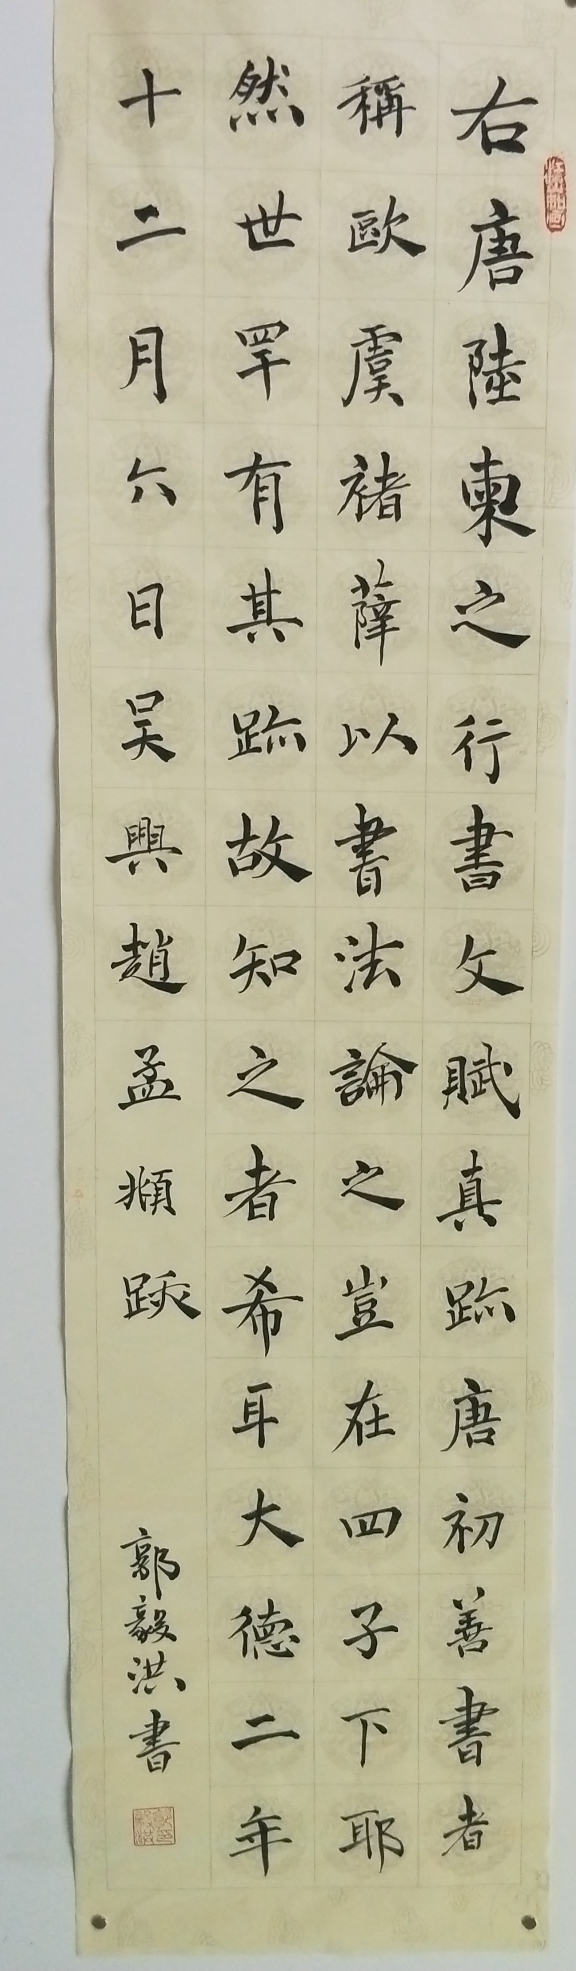 右唐陸柬之行書文賦真跡唐初善書者
稱歐虞褚薛以書法論之豈在四子下耶
然世罕有其跡故知之者希耳大德二年
十二月六日吳興趙孟頫跋
郭毅洪書